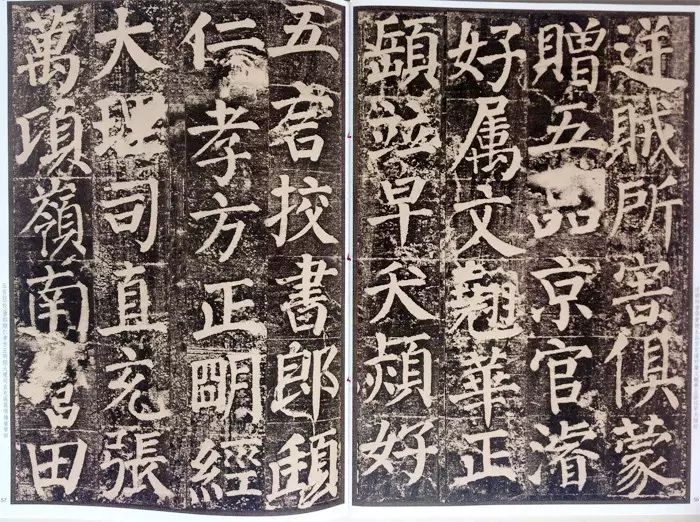 逆賊所害俱蒙
贈五品京官濬
好属文翹華正
頤並早夭熲好
五言挍書郎頲
仁孝方正明經
大理司直充張
萬頃嶺南營田